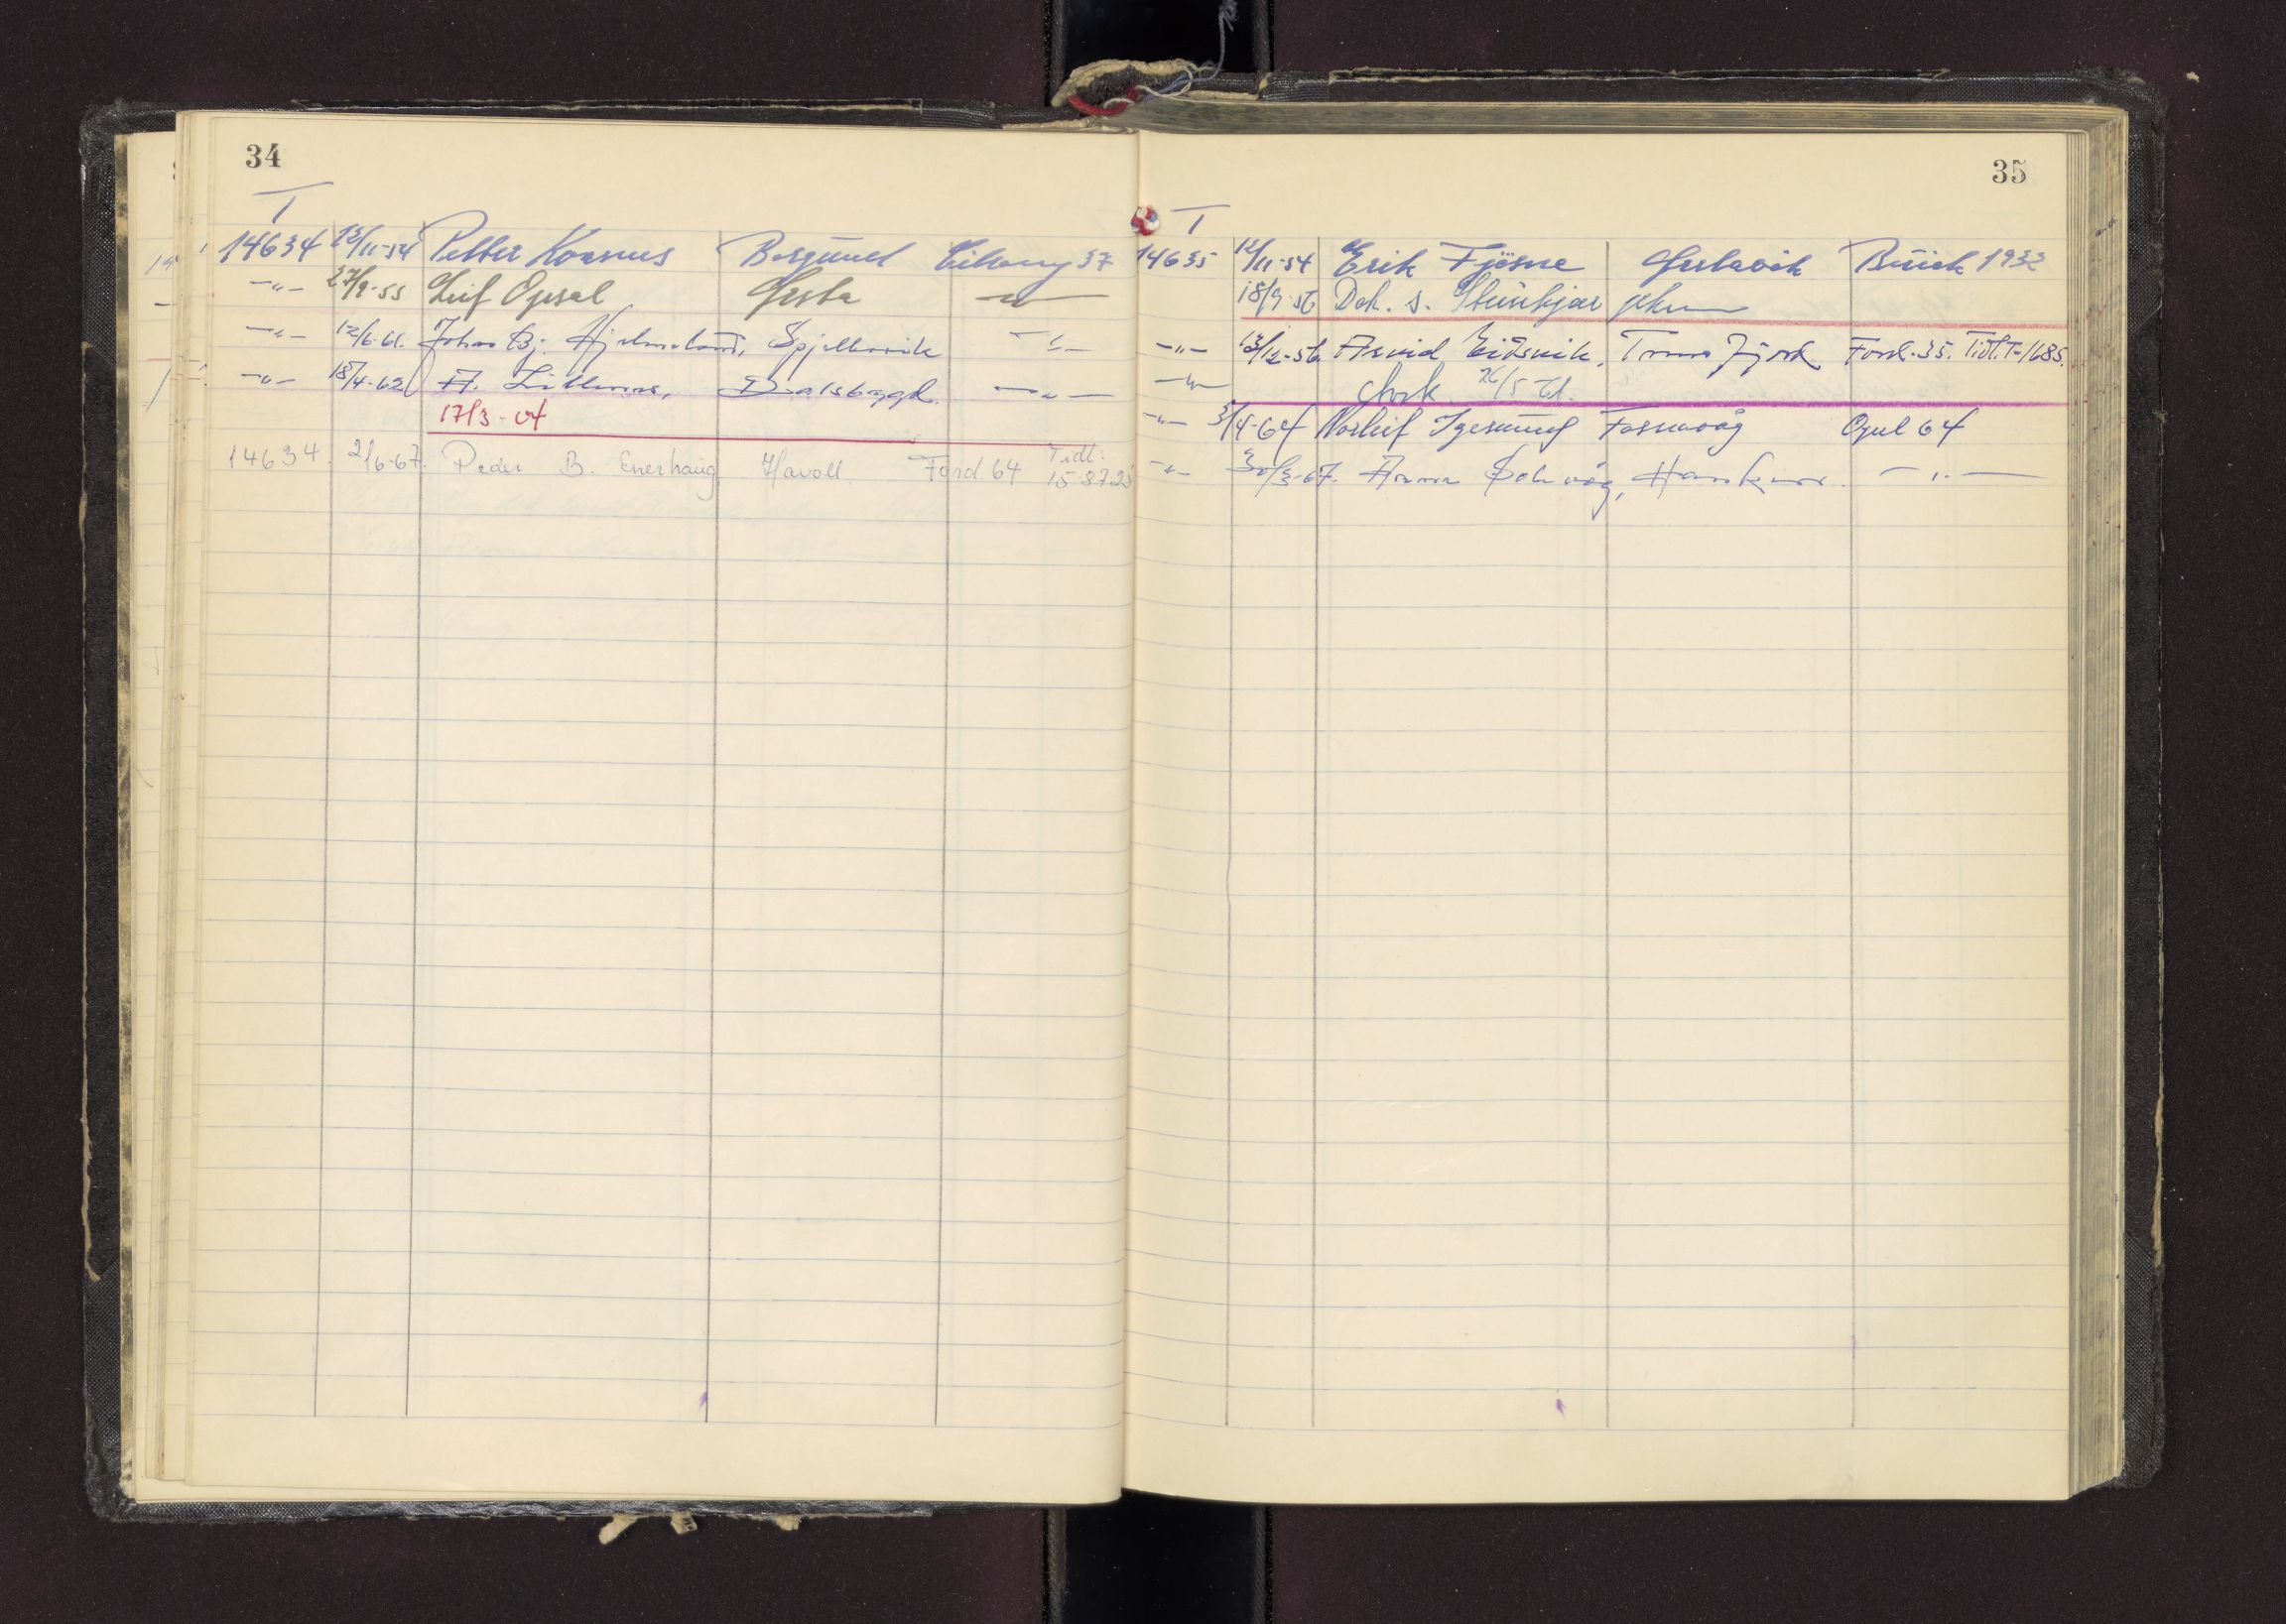 34
T
14634 12/11-54 Petter Korsnes Borgund Citroeng 37
-"- 27/9-55 Leif Opsal Ørsta -"-
-"- 12/6-61. Johan Bj. Hjelmeland, Spjelkavik -"-
-"- 18/4-62 A. Lillenes, Dalsbygd. -"-
17/3-64
14634. 2/6-67. Peder B. Enerhaug Havoll. Ford 64 Tidl: 15-8723
35
T
14635 12/11-54 Erik Fjösne Gurskevik Buick 1933
18/9-56 Dok. s. Steinkjær
-"- 13/12-56 Arvid Eidsvik, Tommefjord Ford-35. Tidl. T-1685.
-"- Avsk. 26/5 61.
-"- 3/4-64 Norleif Igesund Fosnavåg Opel 64
-"- 30/3-67. Solvåg, -"-